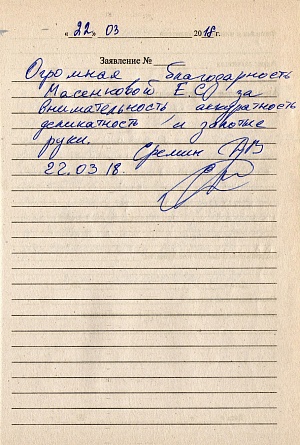 « 22 » 03 2018 г.
Заявление №
Огромная благодарность
Масенковой Е.Ю за
внимательность аккуратность
деликатность и золотые
руки. Еремин АВ
22.03 18.